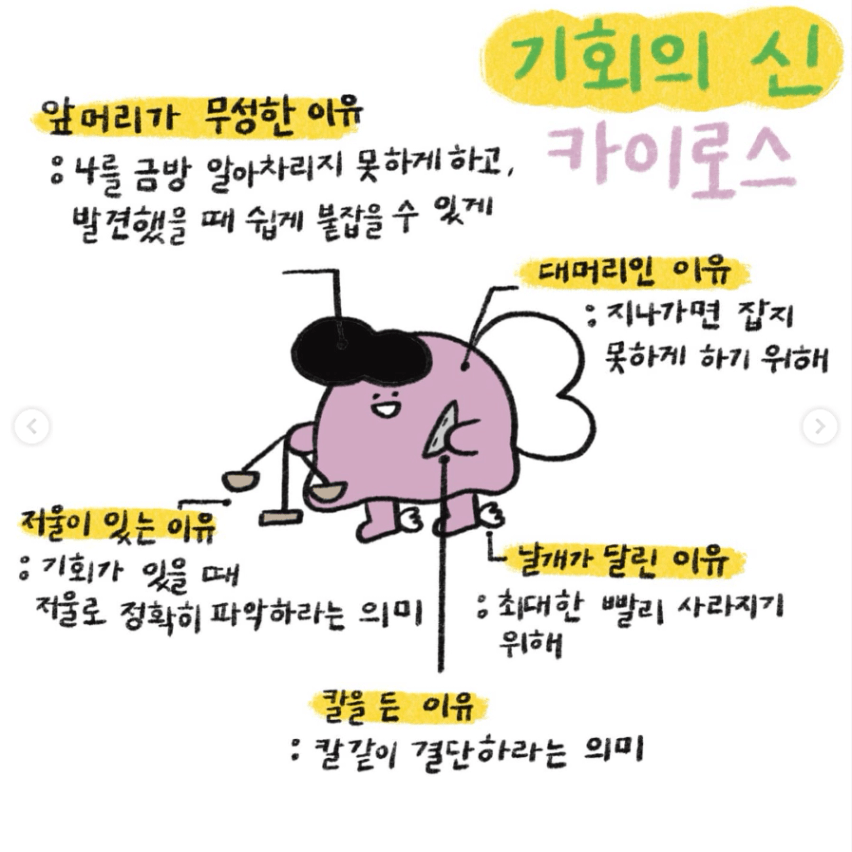 기회의 신
카이로스
앞머리가 무성한 이유
: 나를 금방 알아차리지 못하게 하고,
발견했을 때 쉽게 붙잡을 수 있게
대머리인 이유
: 지나가면 잡지
못하게 하기 위해
저울이 있는 이유
: 기회가 있을 때
저울로 정확히 파악하라는 의미
날개가 달린 이유
: 최대한 빨리 사라지기
위해
칼을 든 이유
: 칼같이 결단하라는 의미